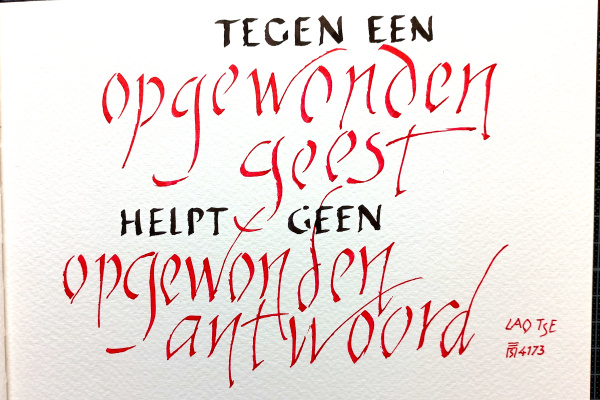 TEGEN EEN
opgewonden
geest
HELPT GEEN
opgewonden
- antwoord
LAO TSE
4173